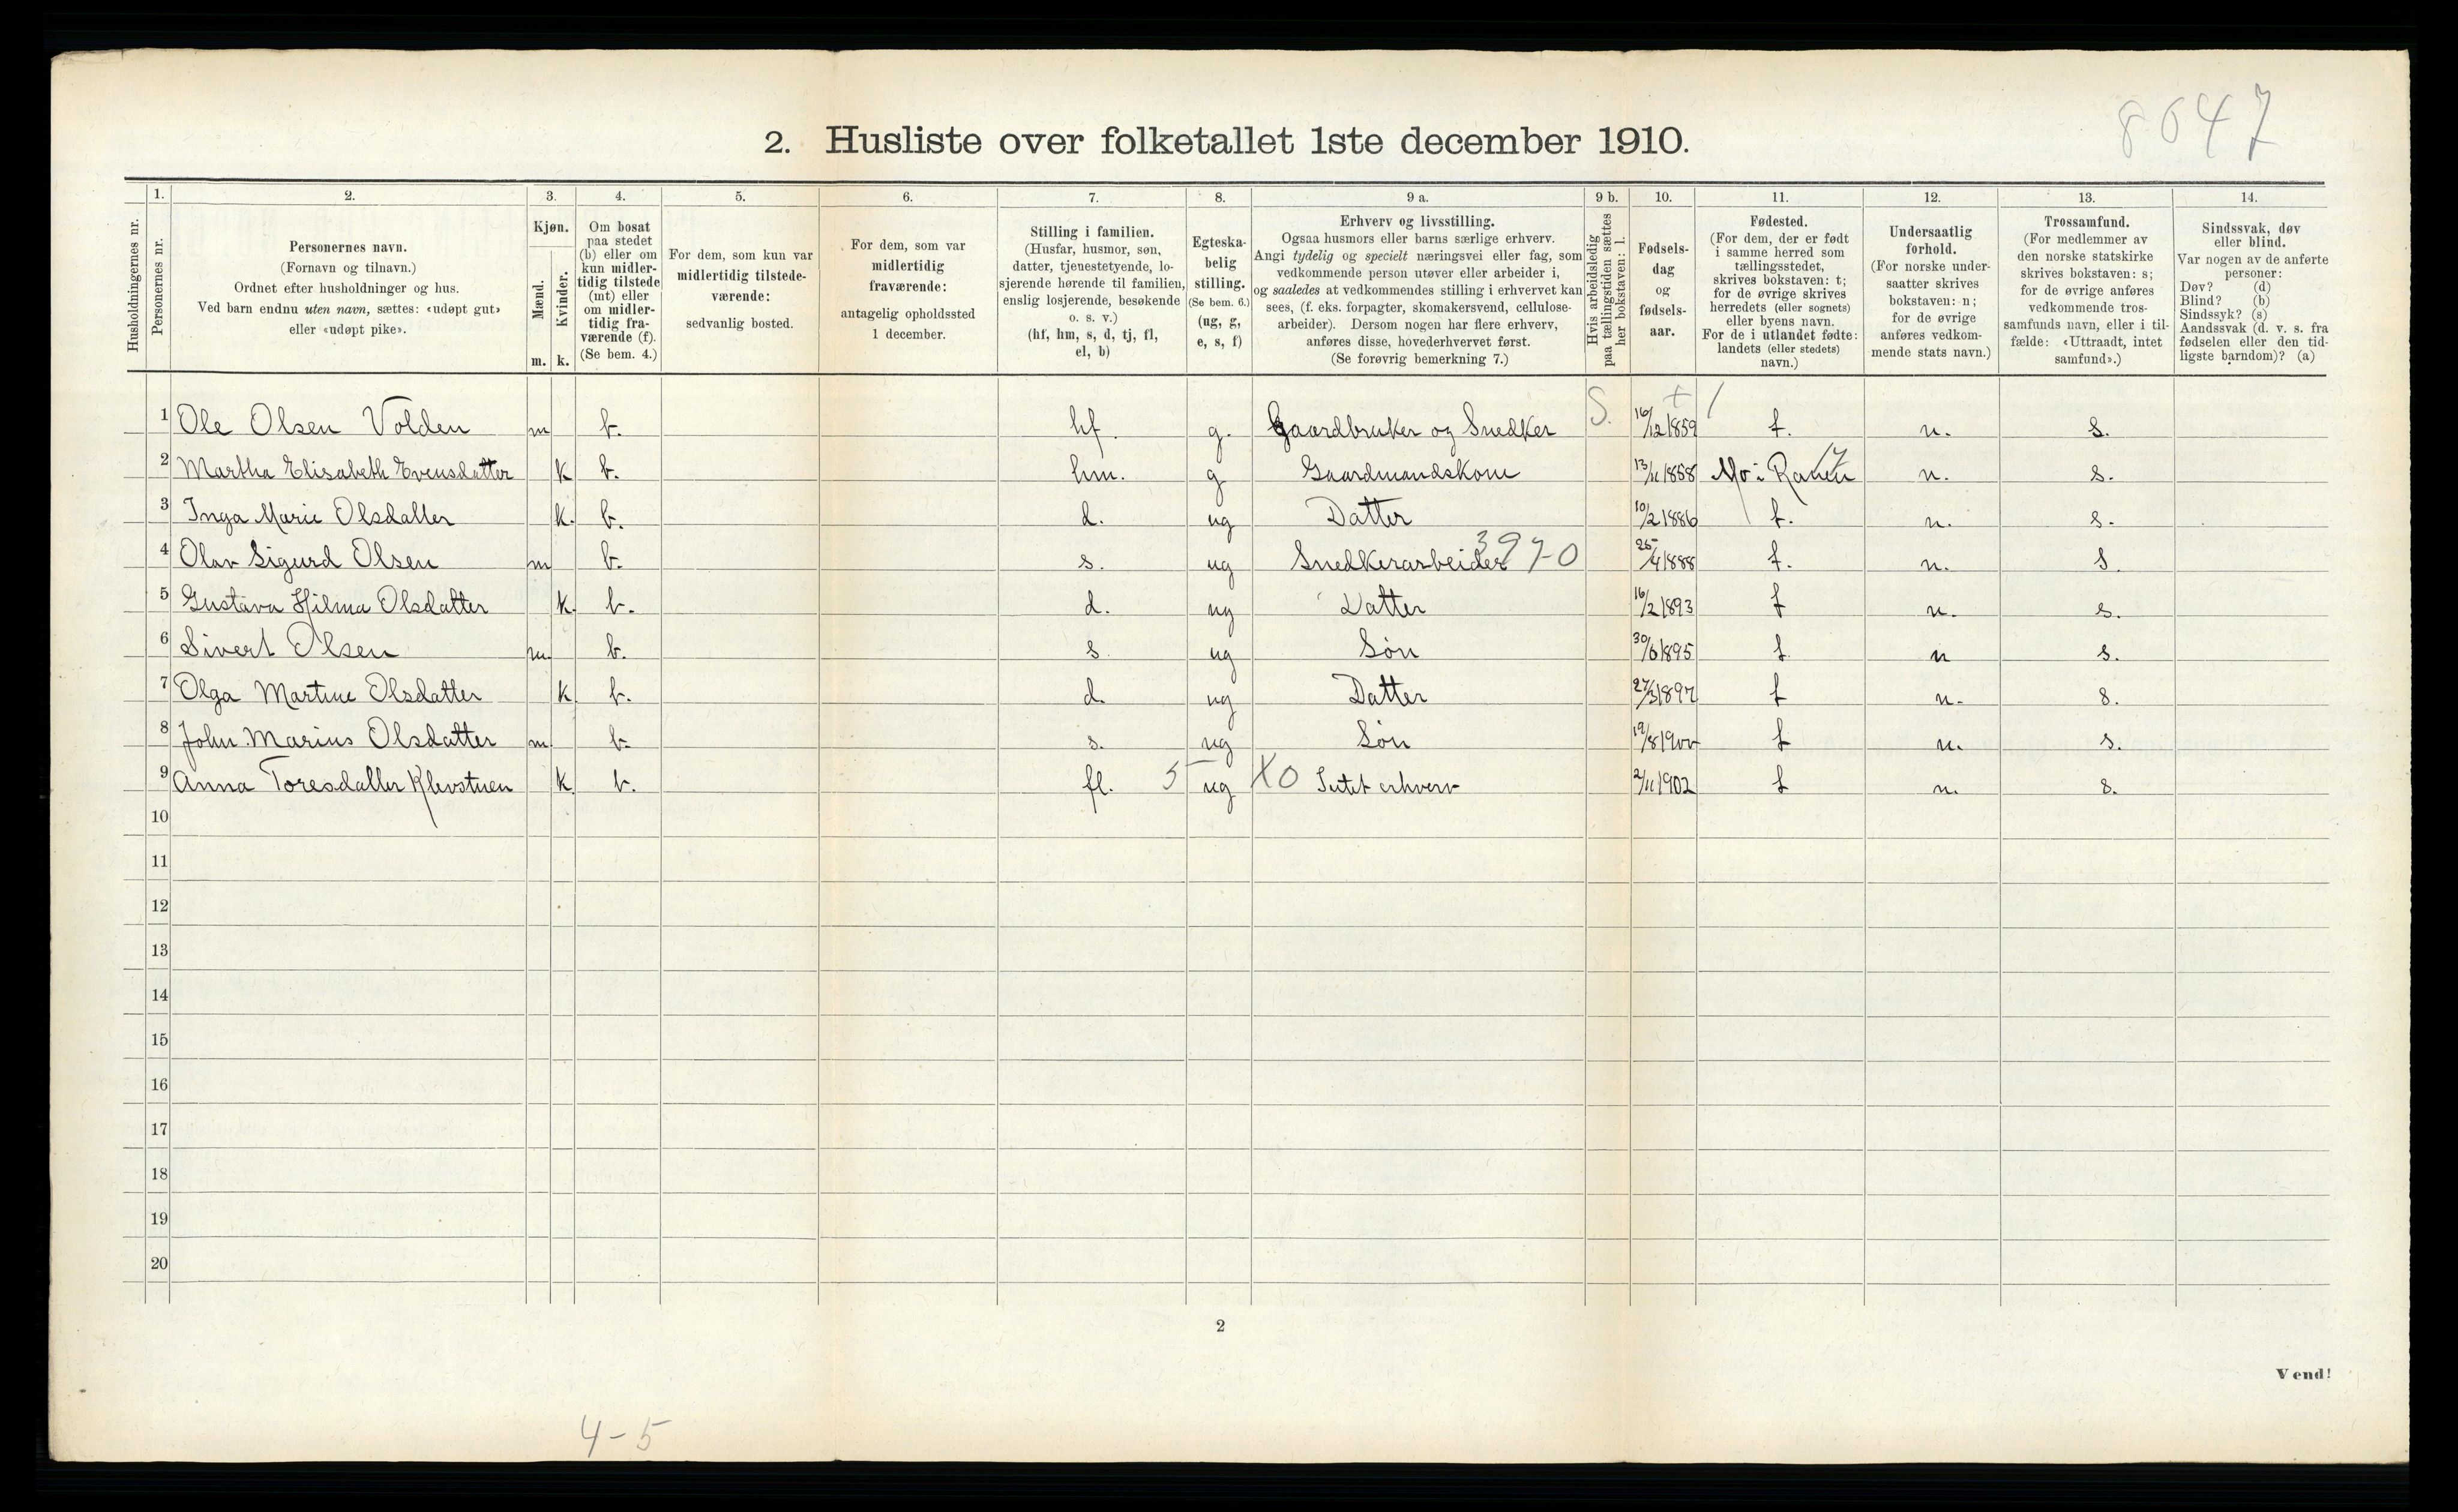 8647
2. Husliste over folketallet 1ste december 1910.
1. 2. 3. 4. 5. 6. 7. 8. 9 a. 9 b. 10. 11. 12. 13. 14.
Husholdningernes nr.
Personernes nr.
Personernes navn.
(Fornavn og tilnavn.)
Ordnet efter husholdninger og hus.
Ved barn endnu uten navn, sættes: «udøpt gut»
eller «udøpt pike».
Kjøn.
Mænd.
Kvinder.
m. k.
Om bosat
paa stedet
(b) eller om
kun midler-
tidig tilstede
(mt) eller
om midler-
tidig fra-
værende (f).
(Se bem. 4.)
For dem, som kun var
midlertidig tilstede-
værende:
sedvanlig bosted.
For dem, som var
midlertidig
fraværende:
antagelig opholdssted
1 december.
Stilling i familien.
(Husfar, husmor, søn,
datter, tjenestetyende, lo-
sjerende hørende til familien,
enslig losjerende, besøkende
o. s. v.)
(hf, hm, s, d, tj, fl,
el, b)
Egteska-
belig
stilling.
(Se bem. 6.)
(ug, g,
e, s, f)
Erhverv og livsstilling.
Ogsaa husmors eller barns særlige erhverv.
Angi tydelig og specielt næringsvei eller fag, som
vedkommende person utøver eller arbeider i,
og saaledes at vedkommendes stilling i erhvervet kan
sees, (f. eks. forpagter, skomakersvend, cellulose-
arbeider). Dersom nogen har flere erhverv,
anføres disse, hovederhvervet først.
(Se forøvrig bemerkning 7.)
Hvis arbeidsledig
paa tællingstiden sættes
her bokstaven: l.
Fødsels-
dag
og
fødsels-
aar.
Fødested.
(For dem, der er født
i samme herred som
tællingsstedet,
skrives bokstaven: t;
for de øvrige skrives
herredets (eller sognets)
eller byens navn.
For de i utlandet fødte:
landets (eller stedets)
navn.)
Undersaatlig
forhold.
(For norske under-
saatter skrives
bokstaven: n;
for de øvrige
anføres vedkom-
mende stats navn.)
Trossamfund.
(For medlemmer av
den norske statskirke
skrives bokstaven: s;
for de øvrige anføres
vedkommende tros-
samfunds navn, eller i til-
fælde: «Uttraadt, intet
samfund».)
Sindssvak, døv
eller blind.
Var nogen av de anførte
personer:
Døv? (d)
Blind? (b)
Sindssyk? (s)
Aandssvak (d. v. s. fra
fødselen eller den tid-
ligste barndom)? (a)
1 Ole Olsen Volden m b. hf. g. Gaardbruker og Snedker S. 16/12 1859 t. n. s.
2 Martha Elisabeth Evensdatter k b. hm. g Gaardmandskone 13/11 1858 Mo i Ranen n. s.
3 Inga Marie Olsdatter k. b. d. ug Datter 10/2 1886 t. n. s.
4 Olav Sigurd Olsen m b. s. ug Snedkerarbeider 25/4 1888 t. n. s
5 Gustava Hilma Olsdatter k. b. d. ug Datter 16/2 1893 t n. s.
6 Sivert Olsen m. b. s. ug Søn 30/6 1895 t n s.
7 Olga Martine Olsdatter k b. d. ug Datter 27/3 1897 t n. s.
8 John Marius Olsdatter m. b. s. ug Søn 19/8 1900 t n. s.
9 Anna Toresdatter Klevstuen k. b. fl. 5 ug X0 Intet erhverv 2/11 1902 t n. s.
10
11
12
13
14
15
16
17
18
19
20
2
Vend!
4-5